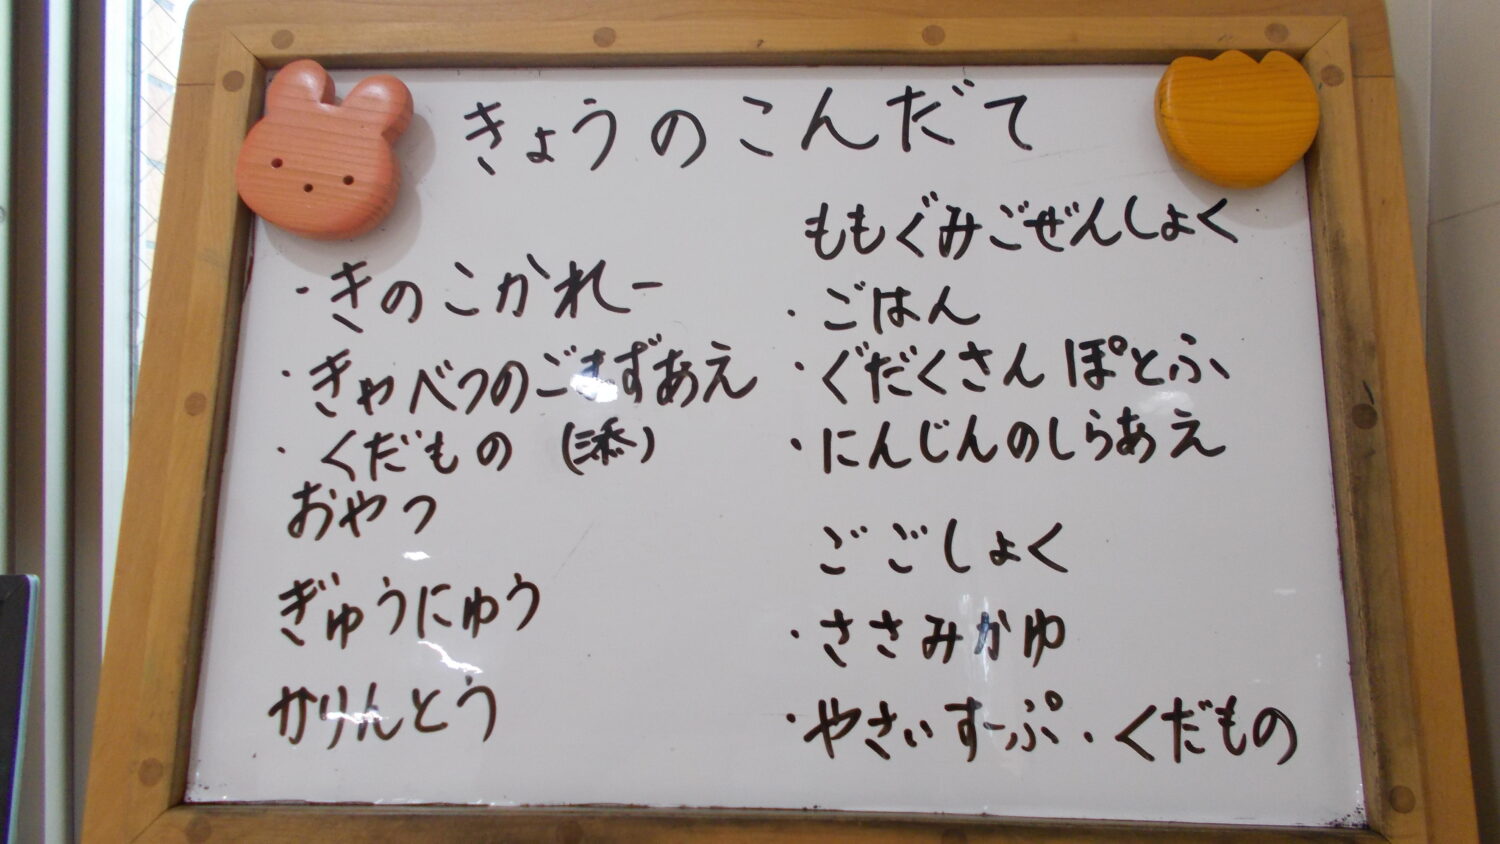 きょうのこんだて
・きのこかれー
・きゃべつのごまずあえ
・くだもの (添)
おやつ
ぎゅうにゅう
かりんとう
ももぐみごぜんしょく
・ごはん
・ぐだくさん ぽとふ
・にんじんのしらあえ
ごごしょく
・ささみかゆ
・やさいすーぷ・くだもの